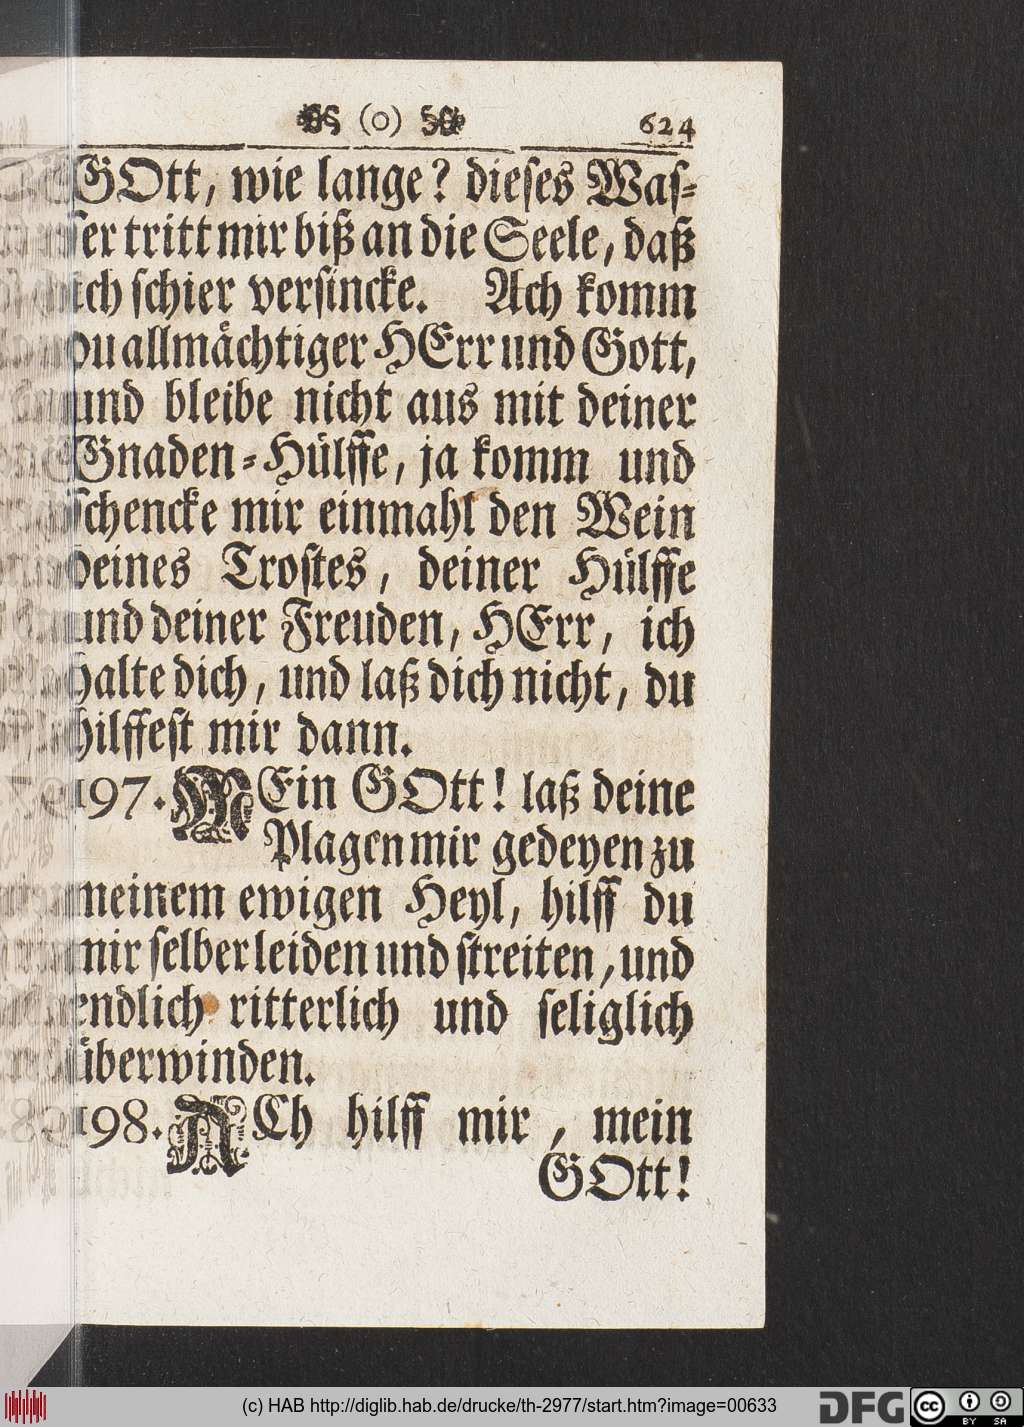 (o) 624
GOtt, wie lange? dieses Was-
ser tritt mir biß an die Seele, daß
ich schier versincke. Ach komm
du allmächtiger HErr und Gott,
und bleibe nicht aus mit deiner
Gnaden-Hülffe, ja komm und
schencke mir einmahl den Wein
deines Trostes, deiner Hülffe
und deiner Freuden, HErr, ich
halte dich, und laß dich nicht, du
hilffest mir dann.
197. MEin GOtt! laß deine
Plagen mir gedeyen zu
meinem ewigen Heyl, hilff du
mir selber leiden und streiten, und
endlich ritterlich und seliglich
überwinden.
198. ACh hilff mir, mein
GOtt!
(c) HAB http://diglib.hab.de/drucke/th-2977/start.htm?image=00633
DFG
cc BY SA